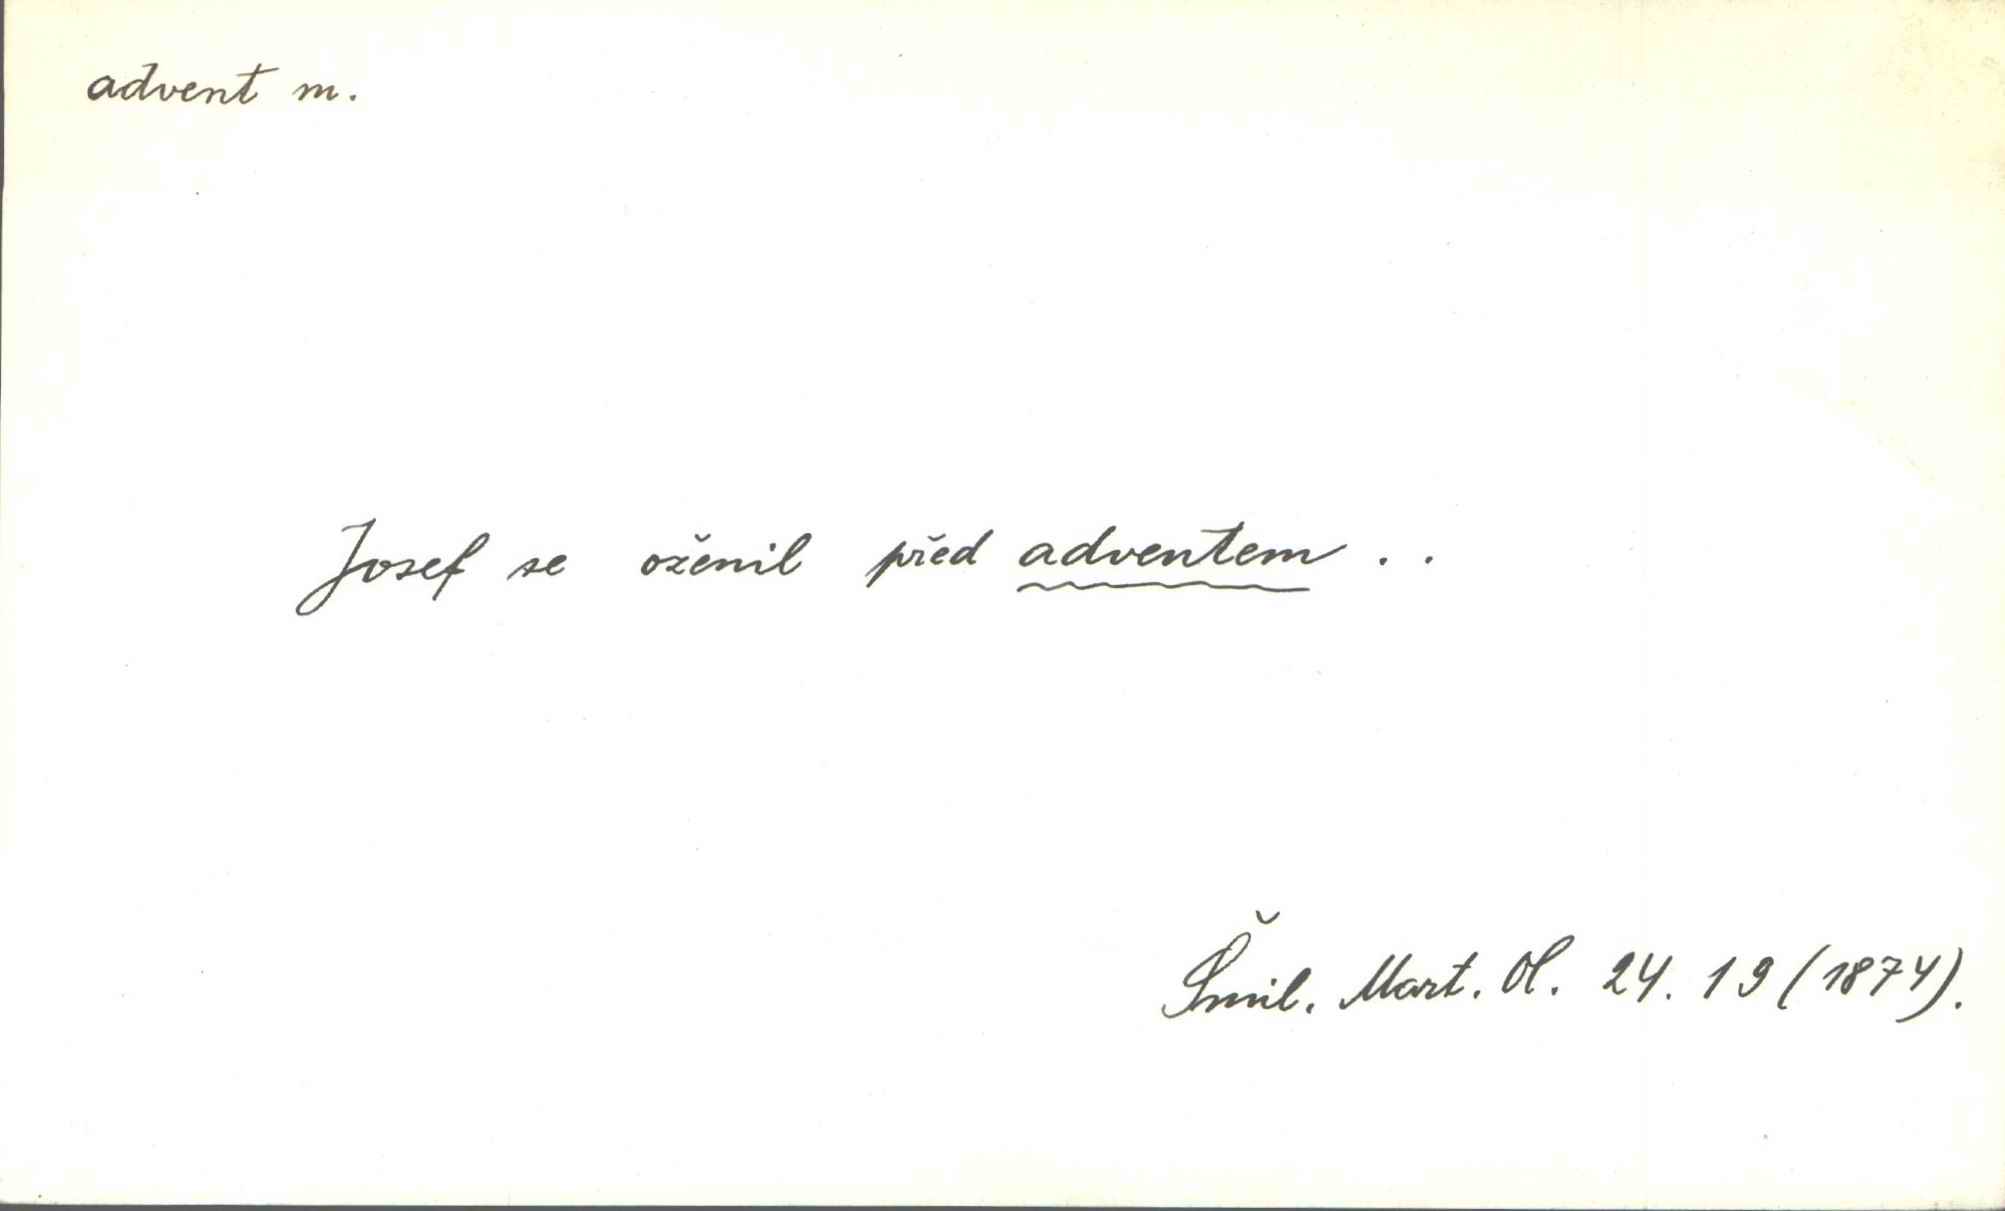 advent m.
Josef se oženil před adventem . .
Šmil. Mart. Ol. 24. 19 (1874).